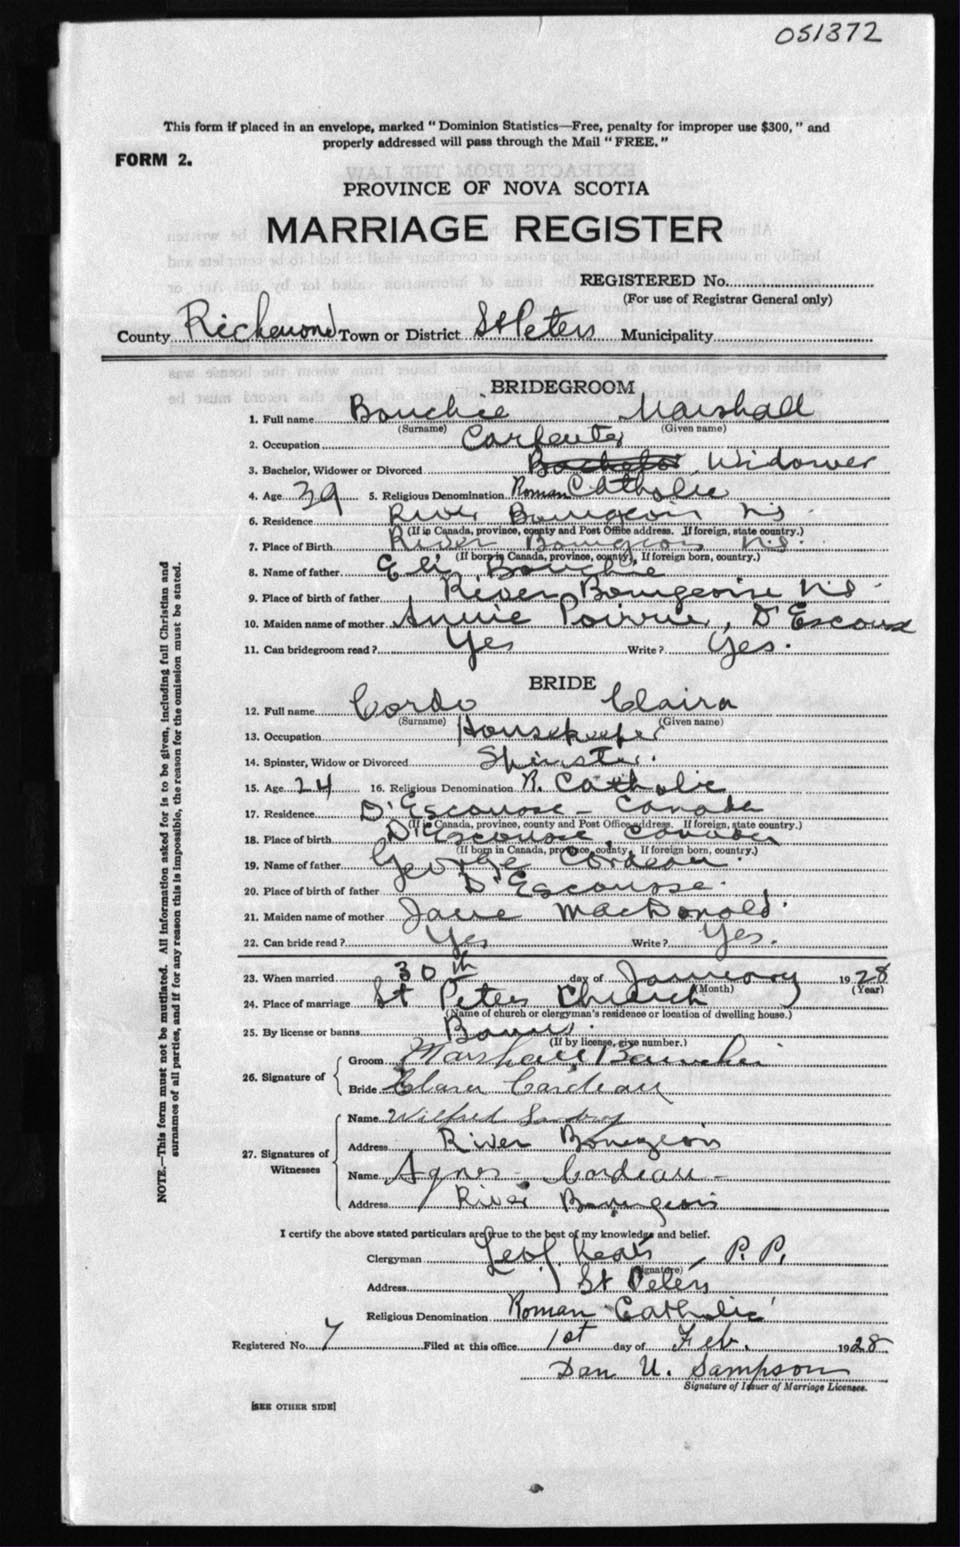 051372
This form if placed in an envelope, marked "Dominion Statistics—Free, penalty for improper use $300," and
properly addressed will pass through the Mail "FREE."
FORM 2.
PROVINCE OF NOVA SCOTIA
MARRIAGE REGISTER
REGISTERED No.
(For use of Registrar General only)
County Richmond Town or District St Peters Municipality
BRIDEGROOM
1. Full name Bouchie Marshall
(Surname) (Given name)
2. Occupation Carpenter
3. Bachelor, Widower or Divorced Bachelor Widower
4. Age 39 5. Religious Denomination Roman Catholic
6. Residence River Bourgeois N.S.
(If in Canada, province, county and Post Office address. If foreign, state country.)
7. Place of Birth River Bourgeois N.S.
(If born in Canada, province, county. If foreign born, country.)
8. Name of father Eli Bouchie
9. Place of birth of father River Bourgeois N.S.
10. Maiden name of mother Annie Poirrie, D'Escousse
11. Can bridegroom read? Yes Write? Yes.
BRIDE
12. Full name Cordo Claira
(Surname) (Given name)
13. Occupation Housekeeper
14. Spinster, Widow or Divorced Spinster.
15. Age 24 16. Religious Denomination R. Catholic
17. Residence D'Escousse - Canada
(If in Canada, province, county and Post Office address. If foreign, state country.)
18. Place of birth D'Escousse, Canada
(If born in Canada, province, county. If foreign born, country.)
19. Name of father George Cordeau.
20. Place of birth of father D'Escousse.
21. Maiden name of mother Jane MacDonald.
22. Can bride read? Yes Write? Yes.
23. When married 30th day of January 1928
(Month) (Year)
24. Place of marriage St Peters Church
(Name of church or clergyman's residence or location of dwelling house.)
25. By license or banns Banns.
(If by license, give number.)
26. Signature of
Groom Marshall
Bride Clara Cordeau
27. Signatures of Witnesses
Name Wilfred
Address River Bourgeois
Name Agnes Cordeau
Address River Bourgeois
I certify the above stated particulars are true to the best of my knowledge and belief.
Clergyman Leo J Keats, P.P.
(Signature)
Address St Peters
Religious Denomination Roman Catholic
Registered No. 7 Filed at this office 1st day of Feb. 1928
Dan U. Sampson
Signature of Issuer of Marriage Licenses.
[SEE OTHER SIDE]
NOTE.—This form must not be mutilated. All information asked for is to be given, including full Christian and
surnames of all parties, and if for any reason this is impossible, the reason for the omission must be stated.